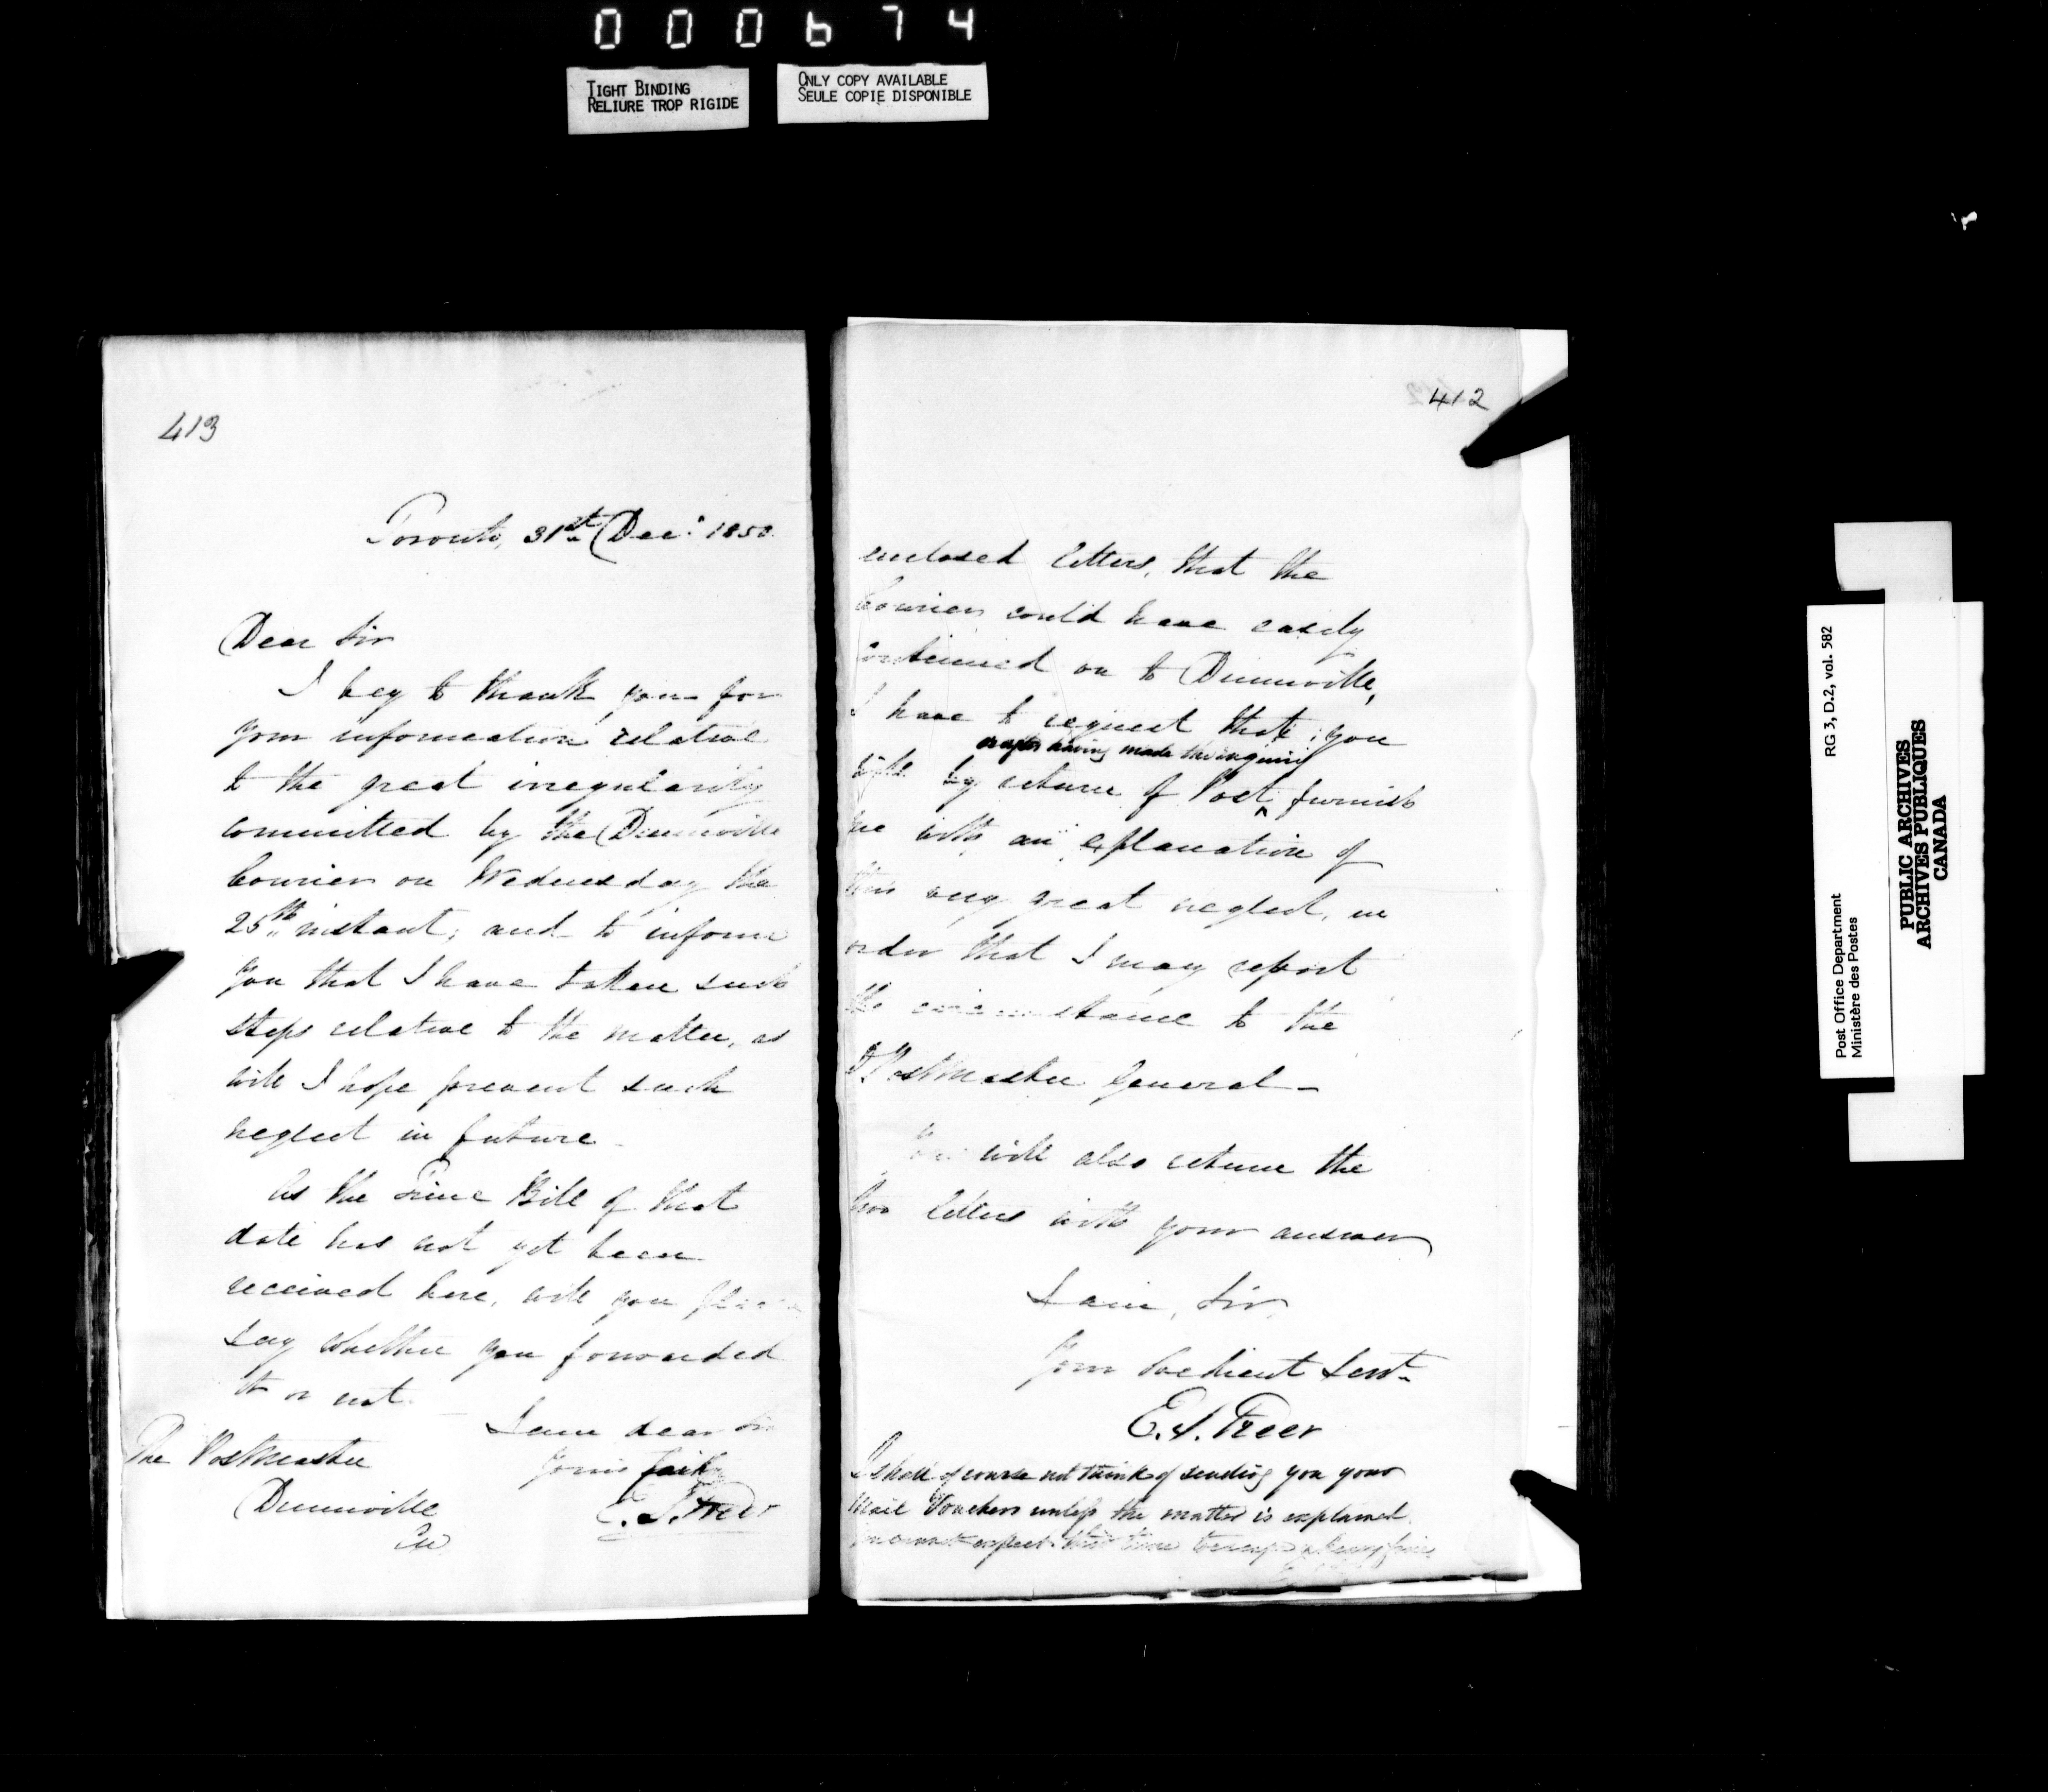 000674
TIGHT BINDING
RELIURE TROP RIGIDE
ONLY COPY AVAILABLE
SEULE COPIE DISPONIBLE
413
Toronto, 31st Decr. 1850.
Dear Sir
I beg to thank you for
your information relative
to the great irregularity
committed by the Dunnville
Courier on Wednesday the
25th instant; and to inform
you that I have taken such
steps relative to the matter, as
will I hope prevent such
neglect in future.
As the Time Bill of that
date has not yet been
received here, will you please
say whether you forwarded
it or not.
I am dear Sir
Yours faithy
E. S. Freer
The Postmaster
Dunnville
CW
412
enclosed letters, that the
Courier could have easily
continued on to Dunnville,
I have to request that you
or after having made the inquiry
will by return of Post ^ furnish
me with an explanation of
this very great neglect, in
order that I may report
the circumstance to the
D. Postmaster General—
You will also return the
two letters with your answer
I am, Sir,
Your Obedient Servt.
E. S. Freer
I shall of course not think of sending you your
Mail Vouchers unless the matter is explained.
RG 3, D.2, vol. 582
Post Office Department
Ministère des Postes
PUBLIC ARCHIVES
ARCHIVES PUBLIQUES
CANADA